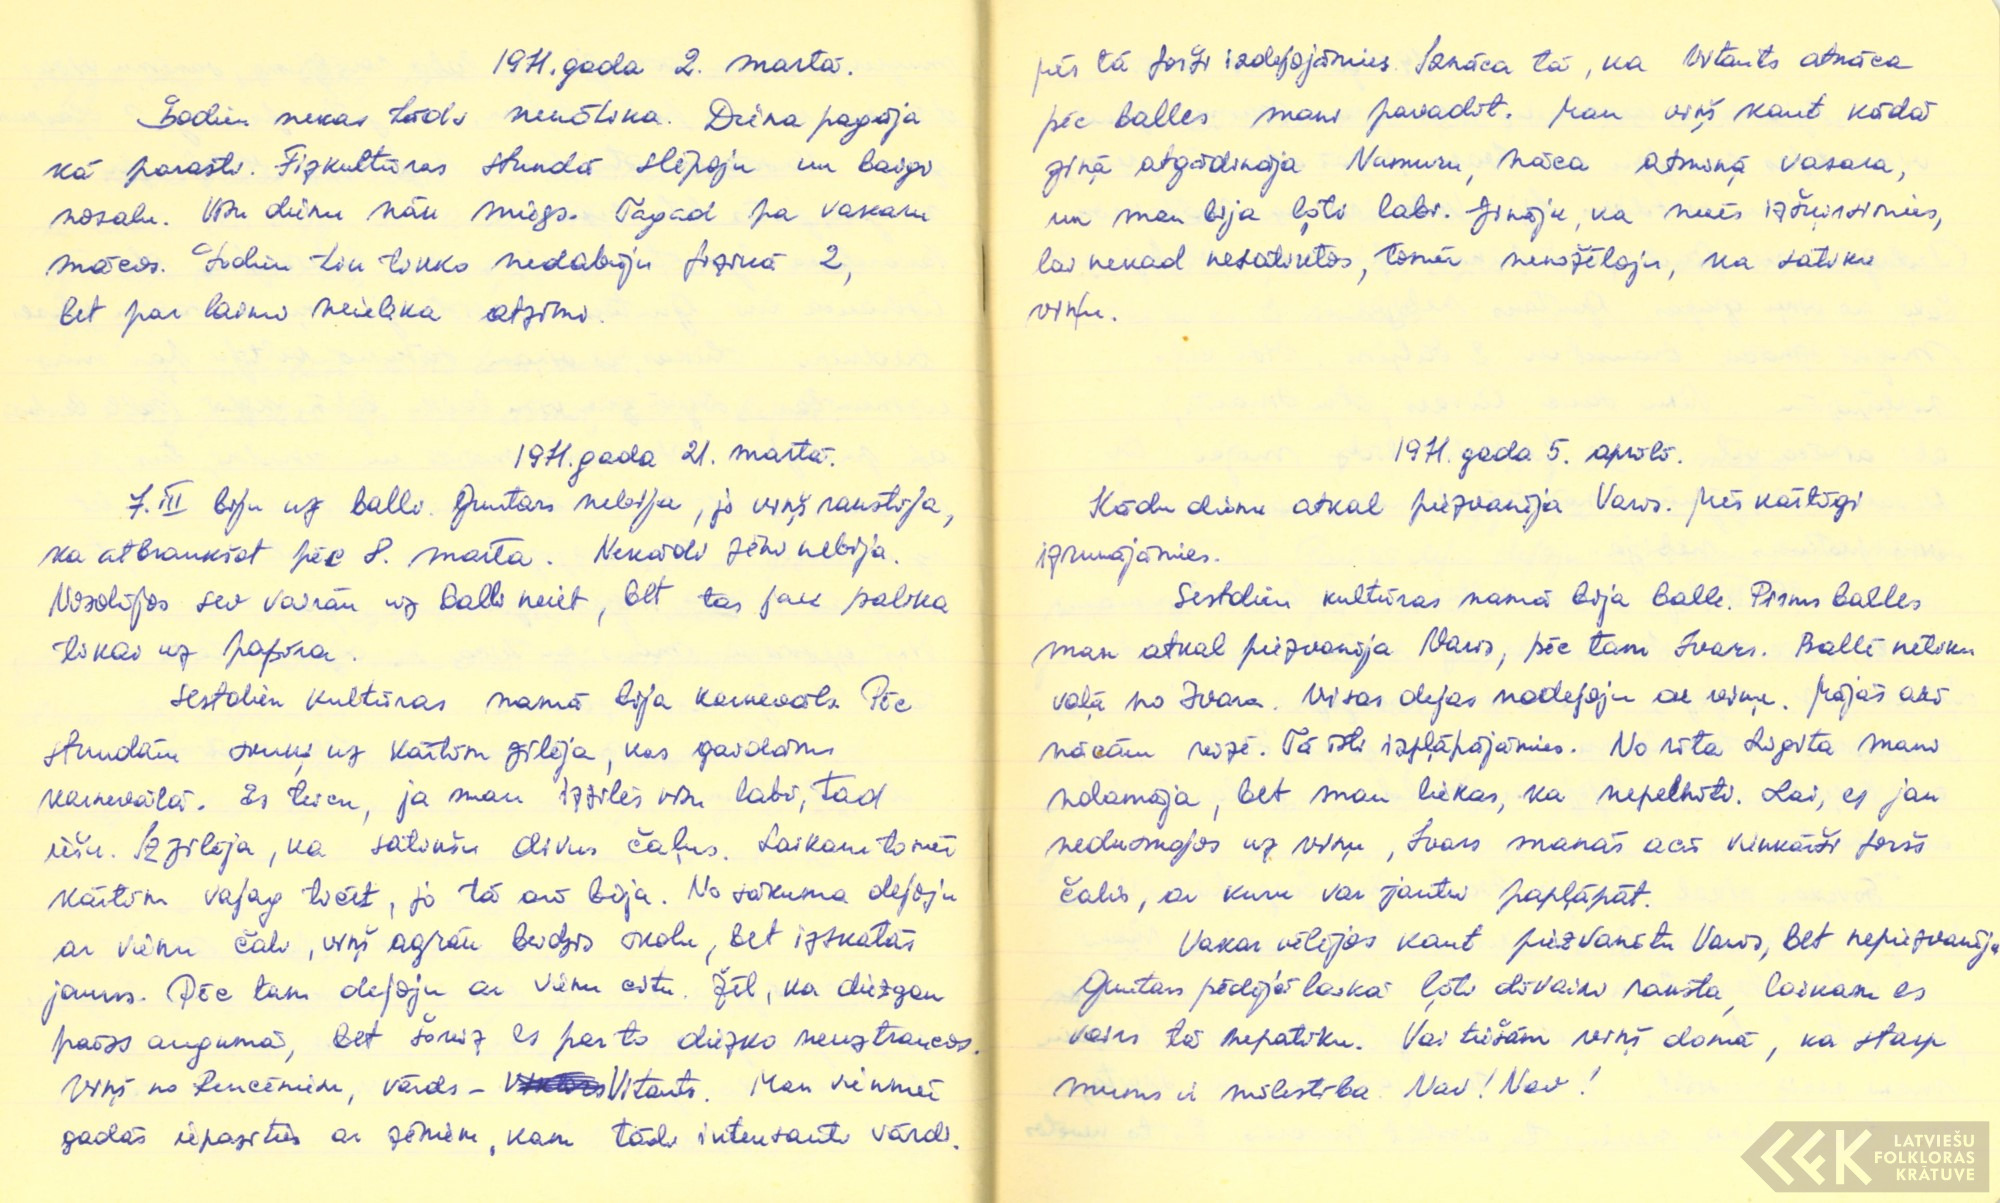 1971.gada 2. martā.
Šodien nekas tāds nenotika. Diena pagāja
kā parasti. Fizkultūras stundā slēpoju un baigi
nosalu. Visu dienu nāk miegs. Tagad pa vakaru
mācos. Šodien tik tikko nedabūju fizikā 2,
bet par laimi neielika atzīmi.
1971.gada 21. martā.
7.III biju uz balli. Guntars nebija, jo viņš rakstīja,
ka atbraukšot pēc 8. marta. Nekādi zēni nebija.
Nosolījos sev vairāk uz balli neiet, bet tas jau palika
tikai uz papīra.
Sestdien kultūras namā bija karnevāls. Pēc
stundām skuķi uz kārtīm zīlēja, kas gaidāms
karnevālā. Es teicu, ja man izzīlēs visu labi, tad
iešu. Izzīlēja, ka satikšu divus čaļus. Laikam tomēr
kārtīm vajag ticēt, jo tā arī bija. No sākuma dejoju
ar vienu čali, viņš agrāk beidzis skolu, bet izskatās
jauns. Pēc tam dejoju ar vienu citu. Žēl, ka diezgan
pašos augumā, bet šoreiz es par to diezko neuztraucos.
Viņš no Rencēniem, vārds - Vitauts. Man vienmēr
gadās iepazīties ar zēniem, kam tādi interesanti vārdi.
pēs tā forši izdejojāmies. Iznāca tā, ka Vitauts atnāca
pēc balles mani pavadīt. Man viņš kaut kādā
ziņā atgādināja Numuru, nāca atmiņā vasara,
un man bija ļoti labi. Zināju, ka mēs izšķirsimies,
lai nekad nesatiktos, tomēr nenožēloju, ka satiku
viņu.
1971.gada 5. aprīlī.
Kādu dienu atkal piezvanīja Varis. Mēs kārtīgi
izrunājāmies.
Sestdien kultūras namā bija balle. Pirms balles
man atkal piezvanīja Varis, pēc tam Ivars. Ballē netiku
vaļā no Ivara. Visas dejas nodejoju ar viņu. Mājās arī
nācām reizē. Tā īsti izpļāpājāmies. No rīta Ligita mani
nolamāja, bet man liekas, ka nepelnīti. Lai, es jau
nedusmojos uz viņu, Ivars manās acīs vienkārši foršs
čalis, ar kuru var jautri papļāpāt.
Vakar vēlējos kaut piezvanītu Varis, bet nepiezvanīja
Guntars pēdējā laikā ļoti dīvaini raksta, laikam es
vairs tā nepatīku. Vai tiešām viņš domā, ka starp
mums ir mīlestība. Nav! Nav!
LATVIEŠU
FOLKLORAS
KRĀTUVE